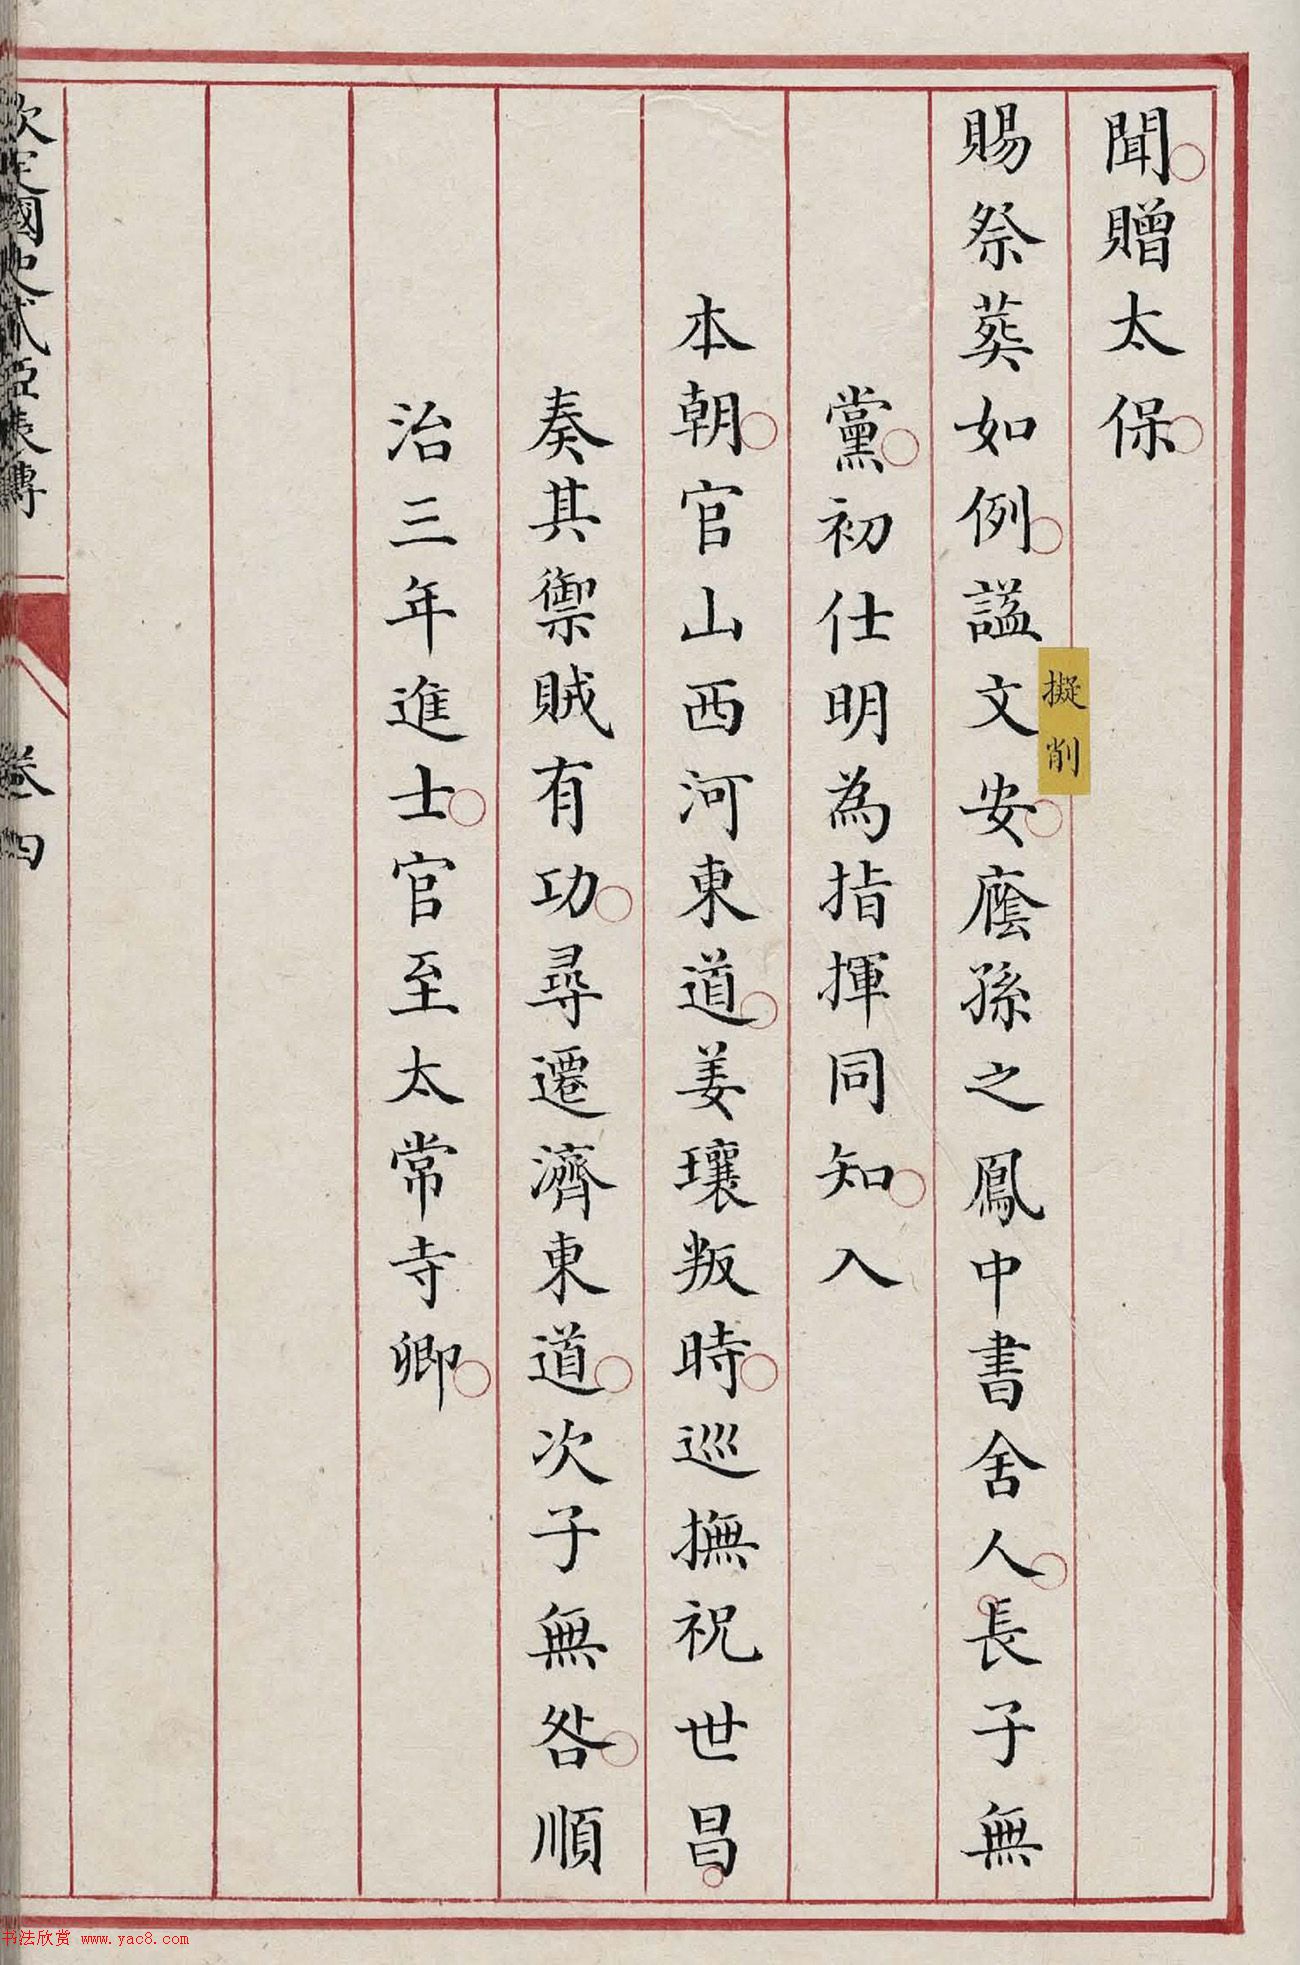 聞贈太保
賜祭葬如例謚文安廕孫之鳳中書舍人長子無
擬削
黨初仕明為指揮同知入
本朝官山西河東道姜瓖叛時巡撫祝世昌
奏其禦賊有功尋遷濟東道次子無咎順
治三年進士官至太常寺卿
欽定國史貳臣表傳
卷四
书法欣赏 www.yac8.com